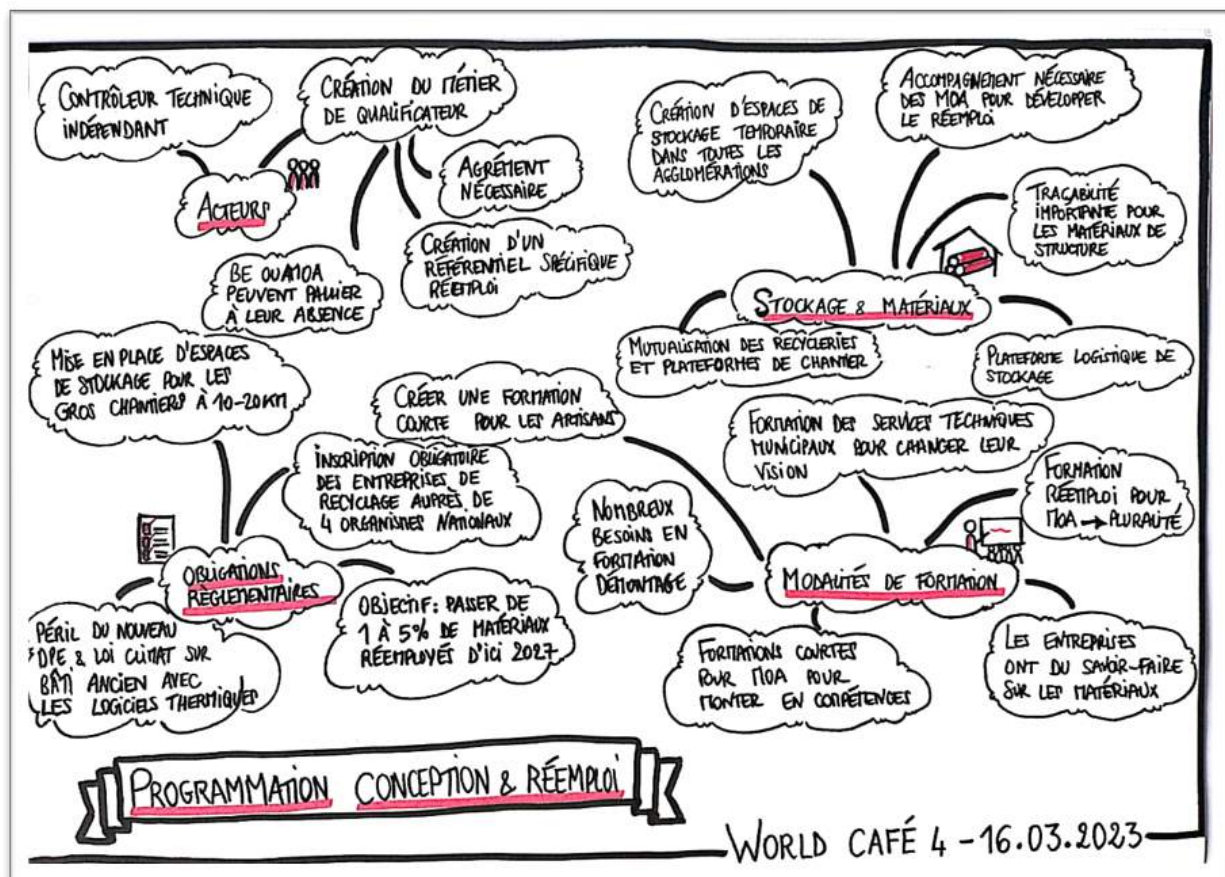 CONTRÔLEUR TECHNIQUE
INDÉPENDANT
CRÉATION DU MÉTIER
DE QUALIFICATEUR
ACTEURS
AGRÉMENT
NÉCESSAIRE
CRÉATION D'UN
RÉFÉRENTIEL SPÉCIFIQUE
RÉEMPLOI
BE OU AMOA
PEUVENT PALLIER
À LEUR ABSENCE
CRÉATION D'ESPACES DE
STOCKAGE TEMPORAIRE
DANS TOUTES LES
AGGLOMÉRATIONS
ACCOMPAGNEMENT NÉCESSAIRE
DES MOA POUR DÉVELOPPER
LE RÉEMPLOI
TRAÇABILITÉ
IMPORTANTE POUR
LES MATÉRIAUX DE
STRUCTURE
STOCKAGE & MATÉRIAUX
MUTUALISATION DES RECYCLERIES
ET PLATEFORMES DE CHANTIER
PLATEFORME LOGISTIQUE DE
STOCKAGE
MISE EN PLACE D'ESPACES
DE STOCKAGE POUR LES
GROS CHANTIERS À 10-20KM
INSCRIPTION OBLIGATOIRE
DES ENTREPRISES DE
RECYCLAGE AUPRÈS DE
4 ORGANISMES NATIONAUX
OBLIGATIONS
RÈGLEMENTAIRES
PÉRIL DU NOUVEAU
DPE & LOI CLIMAT SUR
BÂTI ANCIEN AVEC
LES LOGICIELS THERMIQUES
OBJECTIF: PASSER DE
1 À 5% DE MATÉRIAUX
RÉEMPLOYÉS D'ICI 2027
CRÉER UNE FORMATION
COURTE POUR LES ARTISANS
FORMATION DES SERVICES TECHNIQUES
MUNICIPAUX POUR CHANGER LEUR
VISION
FORMATION
RÉEMPLOI POUR
MOA → PLURALITÉ
NOMBREUX
BESOINS EN
FORMATION
DÉMONTAGE
MODALITÉS DE FORMATION
FORMATIONS COURTES
POUR MOA POUR
MONTER EN COMPÉTENCES
LES ENTREPRISES
ONT DU SAVOIR-FAIRE
SUR LES MATÉRIAUX
PROGRAMMATION CONCEPTION & RÉEMPLOI
WORLD CAFÉ 4 - 16.03.2023